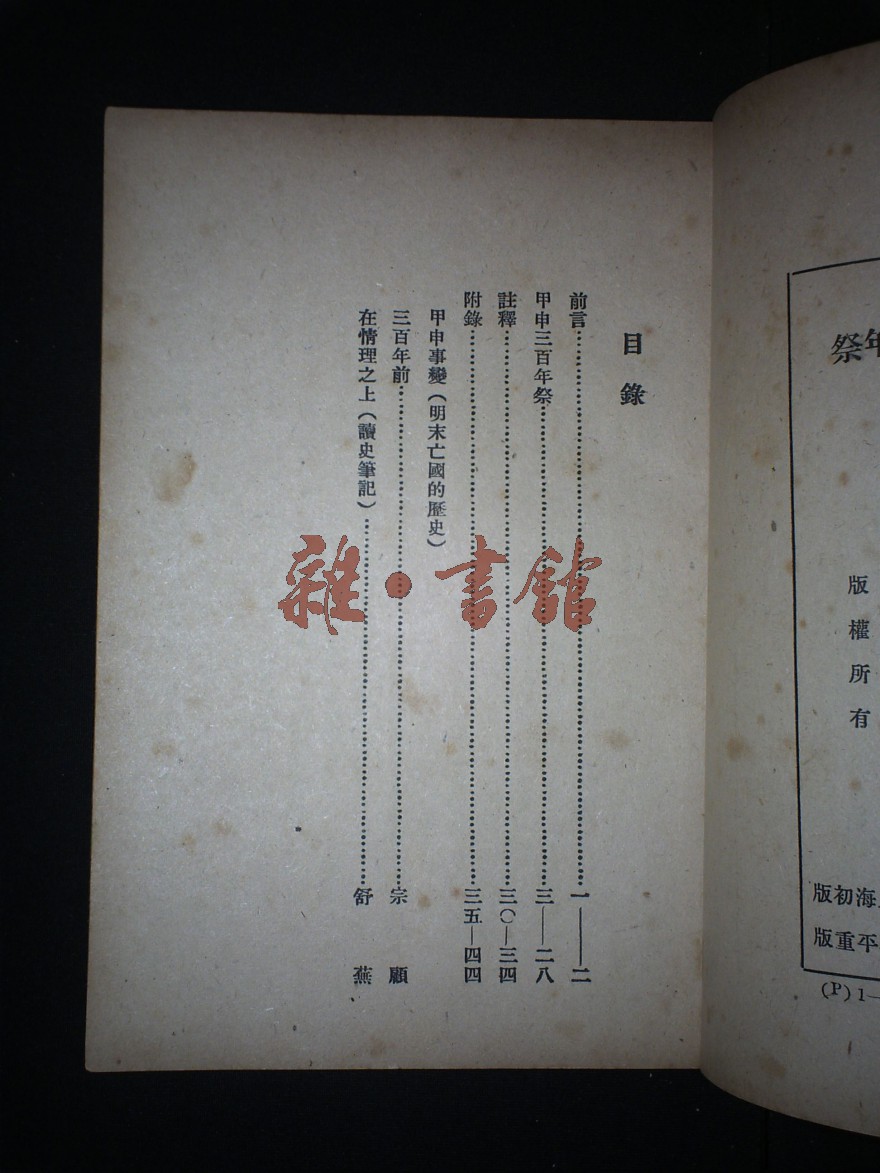 目錄
前言……一——二
甲申三百年祭……三—二八
註釋……三〇—三四
附錄……三五—四四
甲申事變（明末亡國的歷史）
三百年前……宗顧
在情理之上（讀史筆記）……舒蕪
雜·書館
年祭
版權所有
海初版
平重版
(P)1—